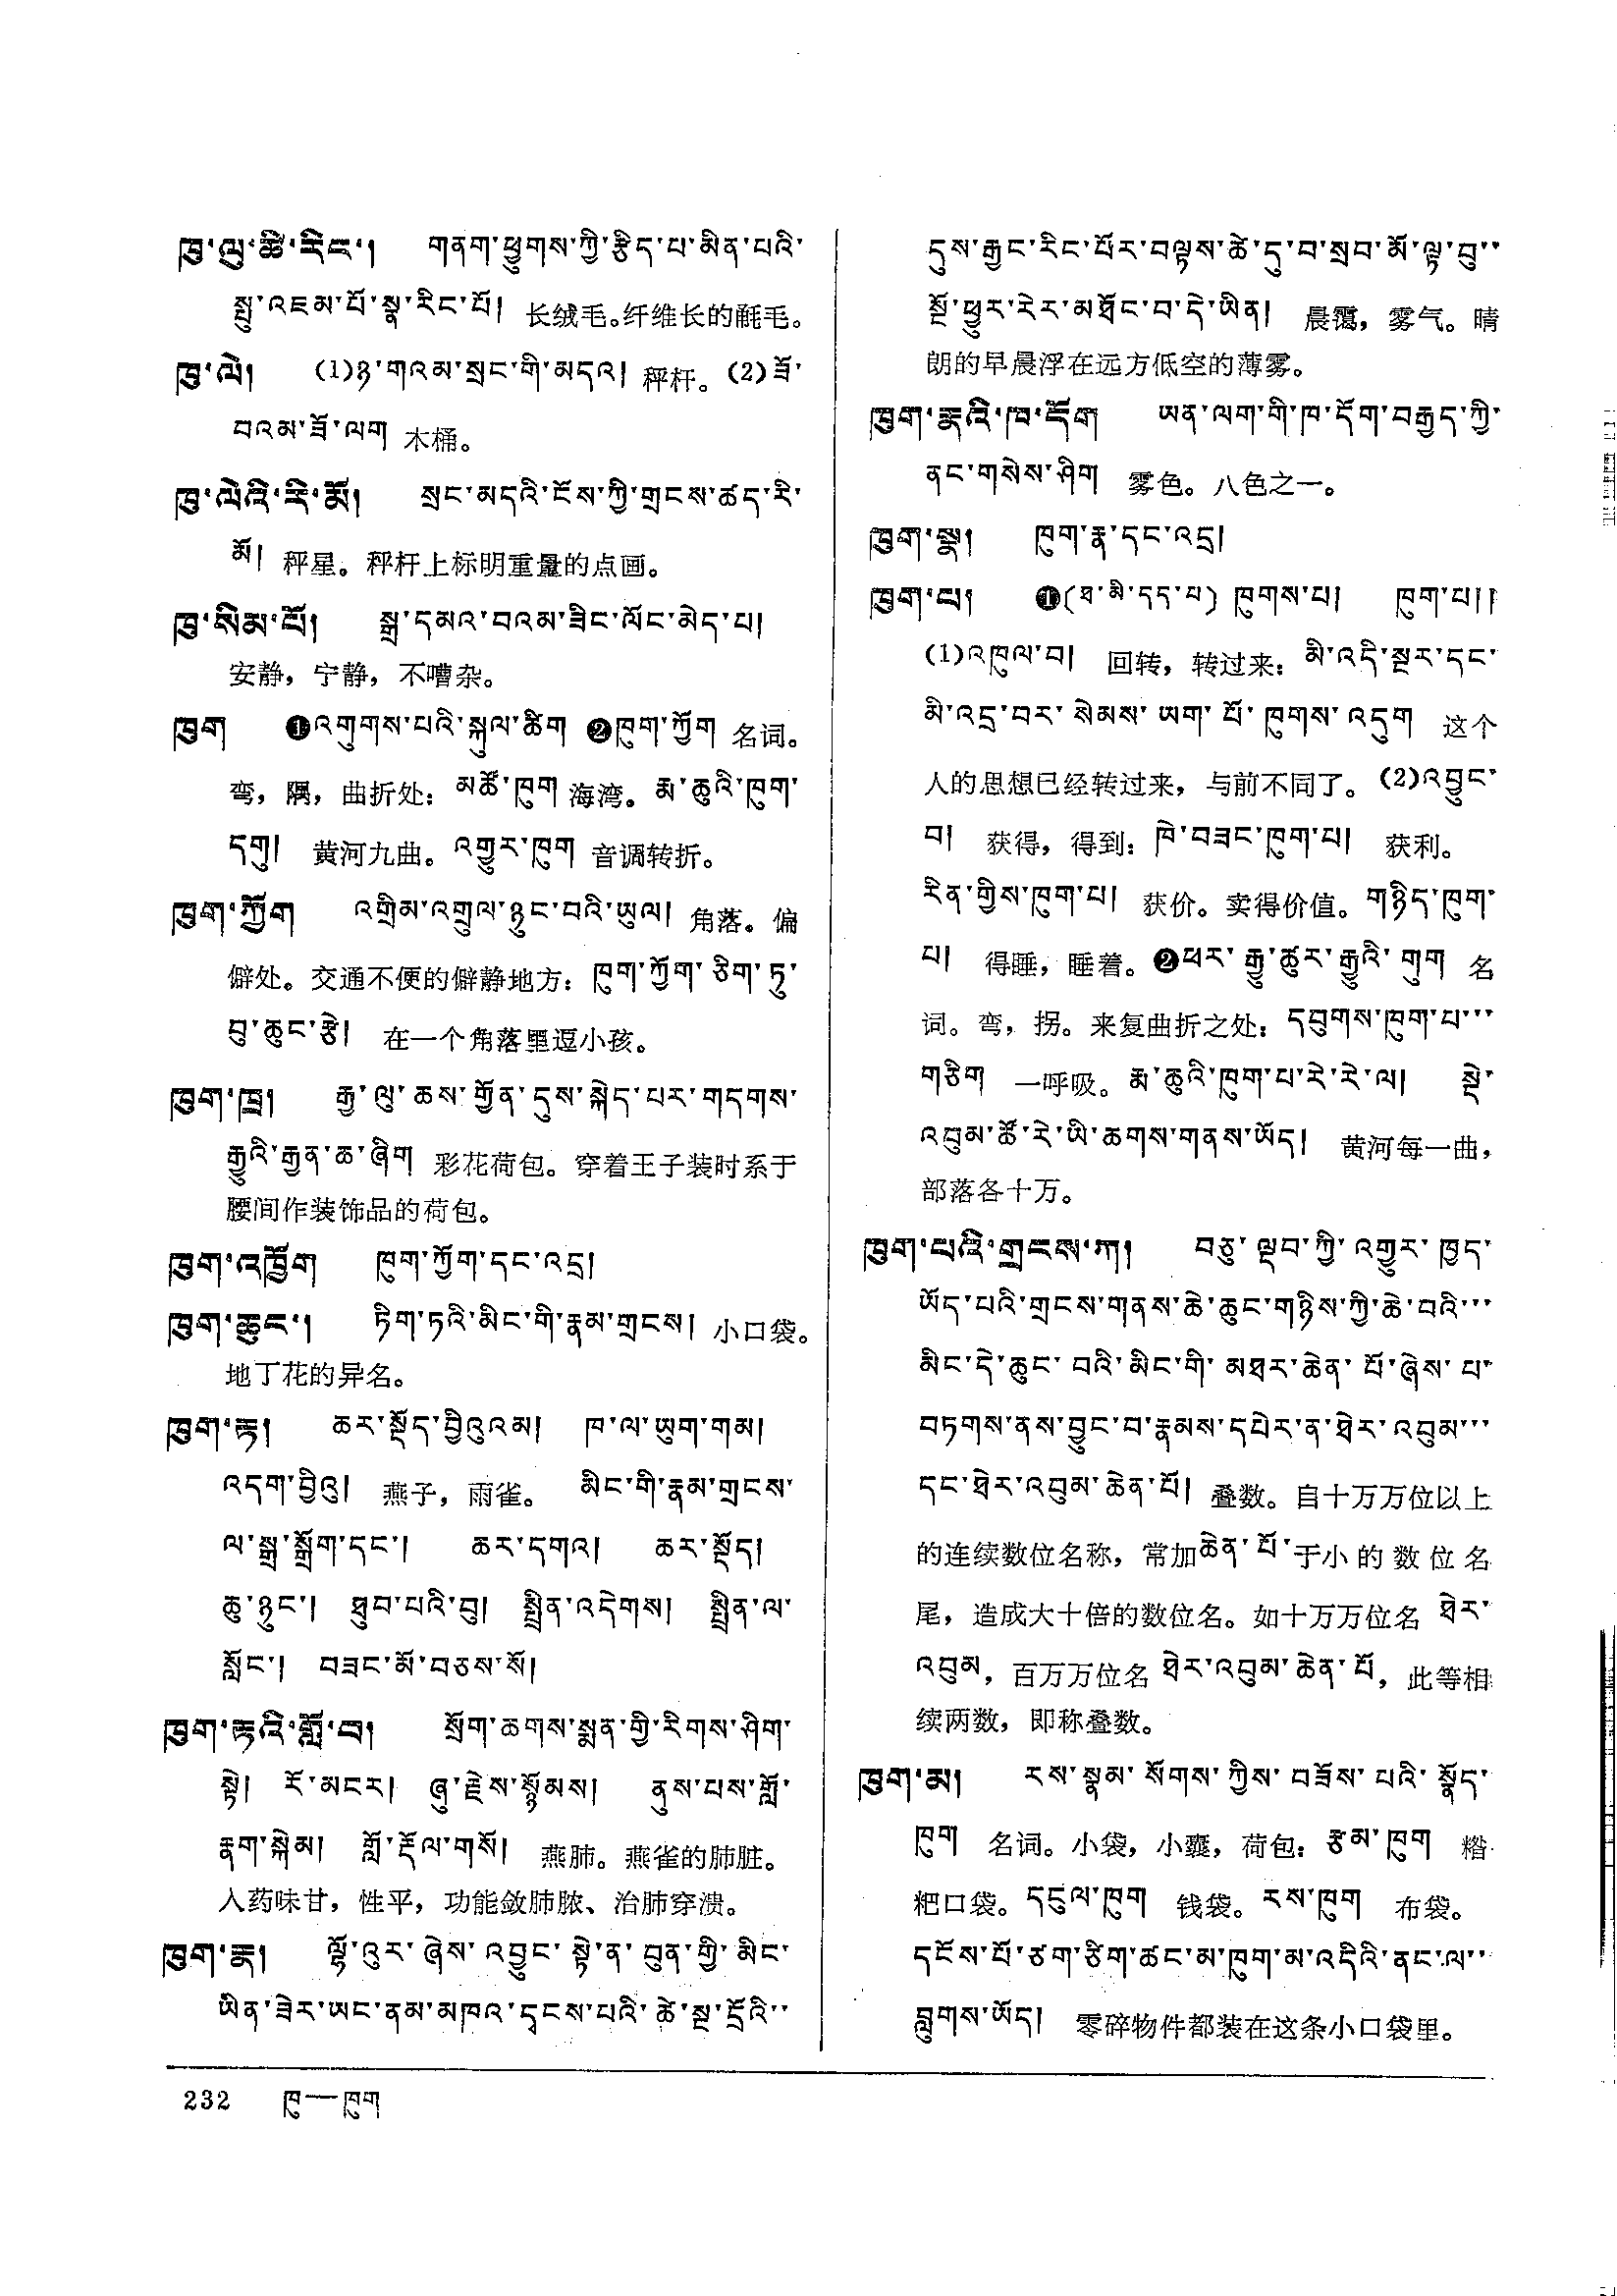 ཁུ་ལུ་ཚི་རིང་། གནག་ཕྱུགས་ཀྱི་རྩིད་པ་མིན་པའི་
སྤུ་འཇམ་པོ་སྣ་རིང་པོ། 长绒毛。纤维长的毹毛。
ཁུ་ལེ། (1)ཉ་གའམ་སྲང་གི་མདའ། 秤杆。(2)ཟོ་
བའམ་ཟོ་ལག 木桶。
ཁུ་ལེའི་རི་མོ། སྲང་མདའི་ངོས་ཀྱི་གྲངས་ཚད་རི་
མོ། 秤星。秤杆上标明重量的点画。
ཁུ་སིམ་པོ། སྒྲ་དམའ་བའམ་ཟིང་ལོང་མེད་པ།
安静，宁静，不嘈杂。
ཁུག ❶འགུགས་པའི་སྐུལ་ཚིག ❷ཁུག་ཀྱོག 名词。
弯，隅，曲折处：མཚོ་ཁུག 海湾。རྨ་ཆུའི་ཁུག་
དགུ། 黄河九曲。འགྱུར་ཁུག 音调转折。
ཁུག་ཀྱོག འགྲིམ་འགྲུལ་ཉུང་བའི་ཡུལ། 角落。偏
僻处。交通不便的僻静地方：ཁུག་ཀྱོག་ཅིག་ཏུ་
བུ་ཆུང་རྩེ། 在一个角落里逗小孩。
ཁུག་ཁྲ། རྒྱ་ལུ་ཆས་གྱོན་དུས་སྐེད་པར་གདགས་
རྒྱུའི་རྒྱན་ཆ་ཞིག 彩花荷包。穿着王子装时系于
腰间作装饰品的荷包。
ཁུག་འཁྱོག ཁུག་ཀྱོག་དང་འདྲ།
ཁུག་ཆུང་། ཏིག་ཏའི་མིང་གི་རྣམ་གྲངས། 小口袋。
地丁花的异名。
ཁུག་རྟ། ཆར་སྡོད་བྱིའུའམ། ཁ་ལ་ཡུག་གམ།
འདག་བྱིའུ། 燕子，雨雀。 མིང་གི་རྣམ་གྲངས་
ལ་སྒྲ་སྒྲོག་དང་། ཆར་དགའ། ཆར་སྡོད།
ཆུ་ཉུང་། ཐུབ་པའི་བུ། སྤྲིན་འདེགས། སྤྲིན་ལ་
སློང་། བཟང་མོ་བཅས་སོ།
ཁུག་རྟའི་གློ་བ། སྲོག་ཆགས་སྨན་གྱི་རིགས་ཤིག་
སྟེ། རོ་མངར། ཞུ་རྗེས་སྙོམས། ནུས་པས་གློ་
རྣག་སྐེམ། གློ་རྡོལ་གསོ། 燕肺。燕雀的肺脏。
入药味甘，性平，功能敛肺脓、治肺穿溃。
ཁུག་རྣ། ལྷོ་འུར་ཞེས་འབྱུང་སྟེ་ན་བུན་གྱི་མིང་
ཡིན་ཟེར་ཡང་ནམ་མཁའ་དྭངས་པའི་ཚེ་སྔ་དྲོའི་་
དུས་རྒྱང་རིང་པོར་བལྟས་ཚེ་དུ་བ་སྲབ་མོ་ལྟ་བུ་་
སྔོ་ཕྱུར་རེར་མཐོང་བ་དེ་ཡིན། 晨霭，雾气。晴
朗的早晨浮在远方低空的薄雾。
ཁུག་རྣའི་ཁ་དོག ཡན་ལག་གི་ཁ་དོག་བརྒྱད་ཀྱི་
ནང་གསེས་ཤིག 雾色。八色之一。
ཁུག་སྣ། ཁུག་རྣ་དང་འདྲ།
ཁུག་པ། ❶(ཐ་མི་དད་པ) ཁུགས་པ། ཁུག་པ།།
(1)འཁུལ་བ། 回转，转过来：མི་འདི་སྔར་དང་
མི་འདྲ་བར་སེམས་ཡག་པོ་ཁུགས་འདུག 这个
人的思想已经转过来，与前不同了。(2)འབྱུང་
བ། 获得，得到：ཁེ་བཟང་ཁུག་པ། 获利。
རིན་གྱིས་ཁུག་པ། 获价。卖得价值。གཉིད་ཁུག་
པ། 得睡，睡着。❷ཕར་རྒྱུ་ཚུར་རྒྱུའི་གུག 名
词。弯，拐。来复曲折之处：དབུགས་ཁུག་པ་་་
གཅིག 一呼吸。རྨ་ཆུའི་ཁུག་པ་རེ་རེ་ལ། སྡེ་
འབུམ་ཚོ་རེ་ཡི་ཆགས་གནས་ཡོད། 黄河每一曲，
部落各十万。
ཁུག་པའི་གྲངས་ཀ། བཅུ་ལྡབ་ཀྱི་འགྱུར་ཁྱད་
ཡོད་པའི་གྲངས་གནས་ཆེ་ཆུང་གཉིས་ཀྱི་ཆེ་བའི་་་
མིང་དེ་ཆུང་བའི་མིང་གི་མཐར་ཆེན་པོ་ཞེས་པ་
བཏགས་ནས་བྱུང་བ་རྣམས་དཔེར་ན་ཐེར་འབུམ་་་
དང་ཐེར་འབུམ་ཆེན་པོ། 叠数。自十万万位以上
的连续数位名称，常加ཆེན་པོ་于小的数位名
尾，造成大十倍的数位名。如十万万位名 ཐེར་
འབུམ，百万万位名 ཐེར་འབུམ་ཆེན་པོ，此等相
续两数，即称叠数。
ཁུག་མ། རས་སྣམ་སོགས་ཀྱིས་བཟོས་པའི་སྣོད་
ཁུག 名词。小袋，小囊，荷包：རྩམ་ཁུག 糌
粑口袋。དངུལ་ཁུག 钱袋。རས་ཁུག 布袋。
དངོས་པོ་ཙག་ཙིག་ཚང་མ་ཁུག་མ་འདིའི་ནང་ལ་་
བླུགས་ཡོད། 零碎物件都装在这条小口袋里。
232 ཁུ—ཁུག